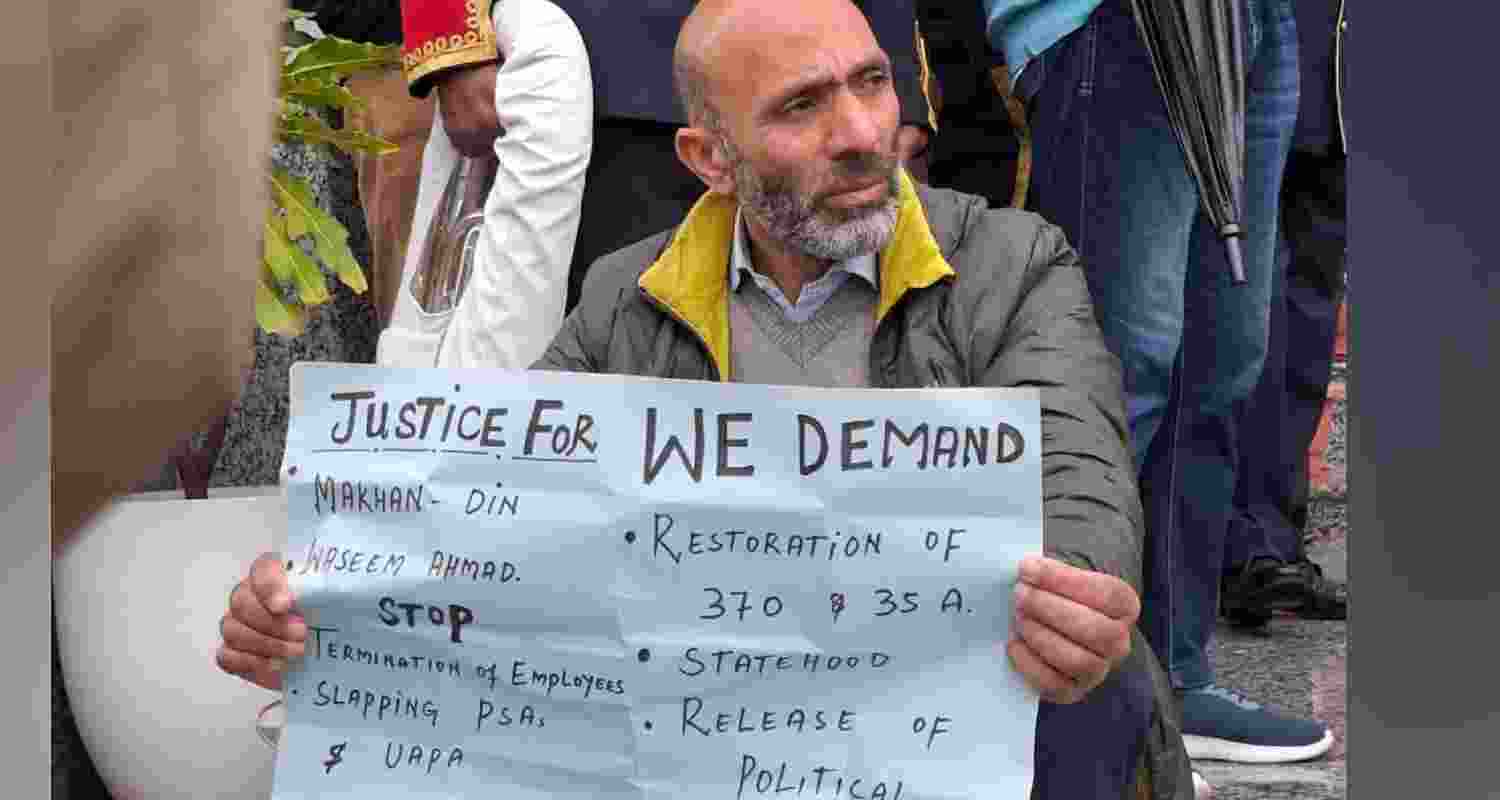 JUSTICE FOR
• MAKHAN-DIN
• WASEEM AHMAD.
STOP
TERMINATION OF EMPLOYEES
• SLAPPING PSA,
& UAPA
WE DEMAND
• RESTORATION OF
370 & 35 A.
• STATEHOOD
• RELEASE OF
POLITICAL